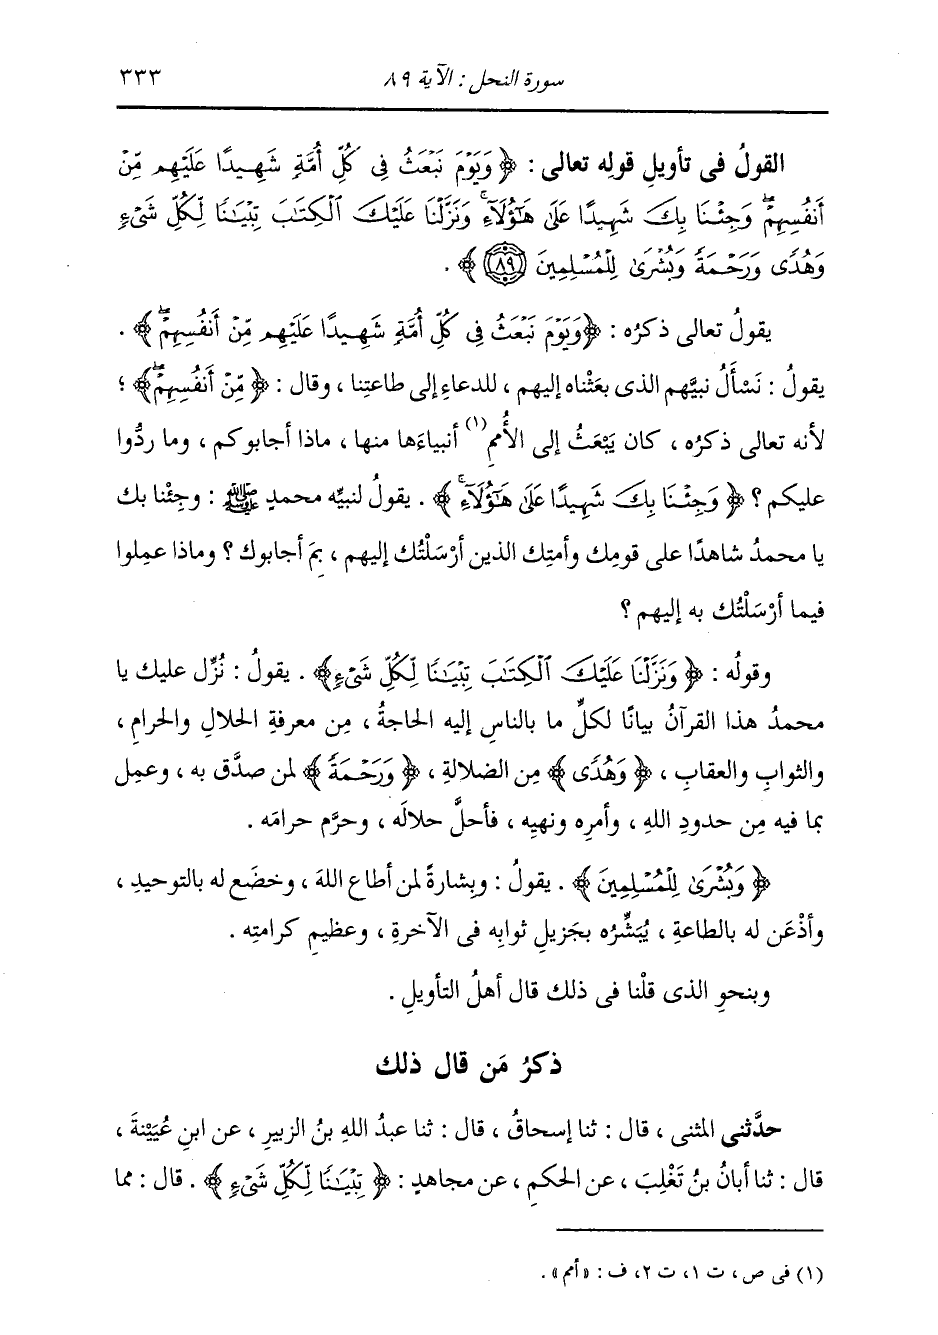 سورة النحل : الآية ٨٩
٣٣٣
القولُ فى تأويلِ قولِه تعالى : ﴿ وَيَوْمَ نَبْعَثُ فِى كُلِّ أُمَّةٍ شَهِيدًا عَلَيْهِم مِّنْ
أَنفُسِهِمْ ۖ وَجِئْنَا بِكَ شَهِيدًا عَلَىٰ هَٰٓؤُلَآءِ ۚ وَنَزَّلْنَا عَلَيْكَ ٱلْكِتَٰبَ تِبْيَٰنًا لِّكُلِّ شَىْءٍ
وَهُدًى وَرَحْمَةً وَبُشْرَىٰ لِلْمُسْلِمِينَ ﴿٨٩﴾ ﴾ .
يقولُ تعالى ذكرُه : ﴿ وَيَوْمَ نَبْعَثُ فِى كُلِّ أُمَّةٍ شَهِيدًا عَلَيْهِم مِّنْ أَنفُسِهِمْ ۖ ﴾ .
يقولُ : نَسْأَلُ نبيَّهم الذى بعَثْناه إليهم ، للدعاءِ إلى طاعتِنا ، وقال : ﴿ مِّنْ أَنفُسِهِمْ ۖ ﴾ ؛
لأنه تعالى ذكرُه ، كان يَبْعَثُ إلى الأُممِ(١) أنبياءَها منها ، ماذا أجابوكم ، وما ردُّوا
عليكم ؟ ﴿ وَجِئْنَا بِكَ شَهِيدًا عَلَىٰ هَٰٓؤُلَآءِ ۚ ﴾ . يقولُ لنبيِّه محمدٍ ﷺ : وجِئْنا بك
يا محمدُ شاهدًا على قومِك وأمتِك الذين أرْسَلْتُك إليهم ، بِمَ أجابوك ؟ وماذا عمِلوا
فيما أرْسَلْتُك به إليهم ؟
وقولُه : ﴿ وَنَزَّلْنَا عَلَيْكَ ٱلْكِتَٰبَ تِبْيَٰنًا لِّكُلِّ شَىْءٍ ﴾ . يقولُ : نُزِّل عليك يا
محمدُ هذا القرآنُ بيانًا لكلِّ ما بالناسِ إليه الحاجةُ ، مِن معرفةِ الحلالِ والحرامِ ،
والثوابِ والعقابِ ، ﴿ وَهُدًى ﴾ مِن الضلالةِ ، ﴿ وَرَحْمَةً ﴾ لمن صدَّق به ، وعمِل
بما فيه مِن حدودِ اللهِ ، وأمرِه ونهيِه ، فأحلَّ حلالَه ، وحرَّم حرامَه .
﴿ وَبُشْرَىٰ لِلْمُسْلِمِينَ ﴾ . يقولُ : وبِشارةً لمن أطاع اللهَ ، وخضَع له بالتوحيدِ ،
وأذْعَن له بالطاعةِ ، يُبَشِّرُه بجَزيلِ ثوابِه فى الآخرةِ ، وعظيمِ كرامتِه .
وبنحوِ الذى قلْنا فى ذلك قال أهلُ التأويلِ .
ذكرُ مَن قال ذلك
حدَّثنى المثنى ، قال : ثنا إسحاقُ ، قال : ثنا عبدُ اللهِ بنُ الزبيرِ ، عن ابنِ عُيَيْنةَ ،
قال : ثنا أبانُ بنُ تَغْلِبَ ، عن الحكمِ ، عن مجاهدٍ : ﴿ تِبْيَٰنًا لِّكُلِّ شَىْءٍ ﴾ . قال : مما
(١) فى ص ، ت ١ ، ت ٢ ، ف : « أمم » .